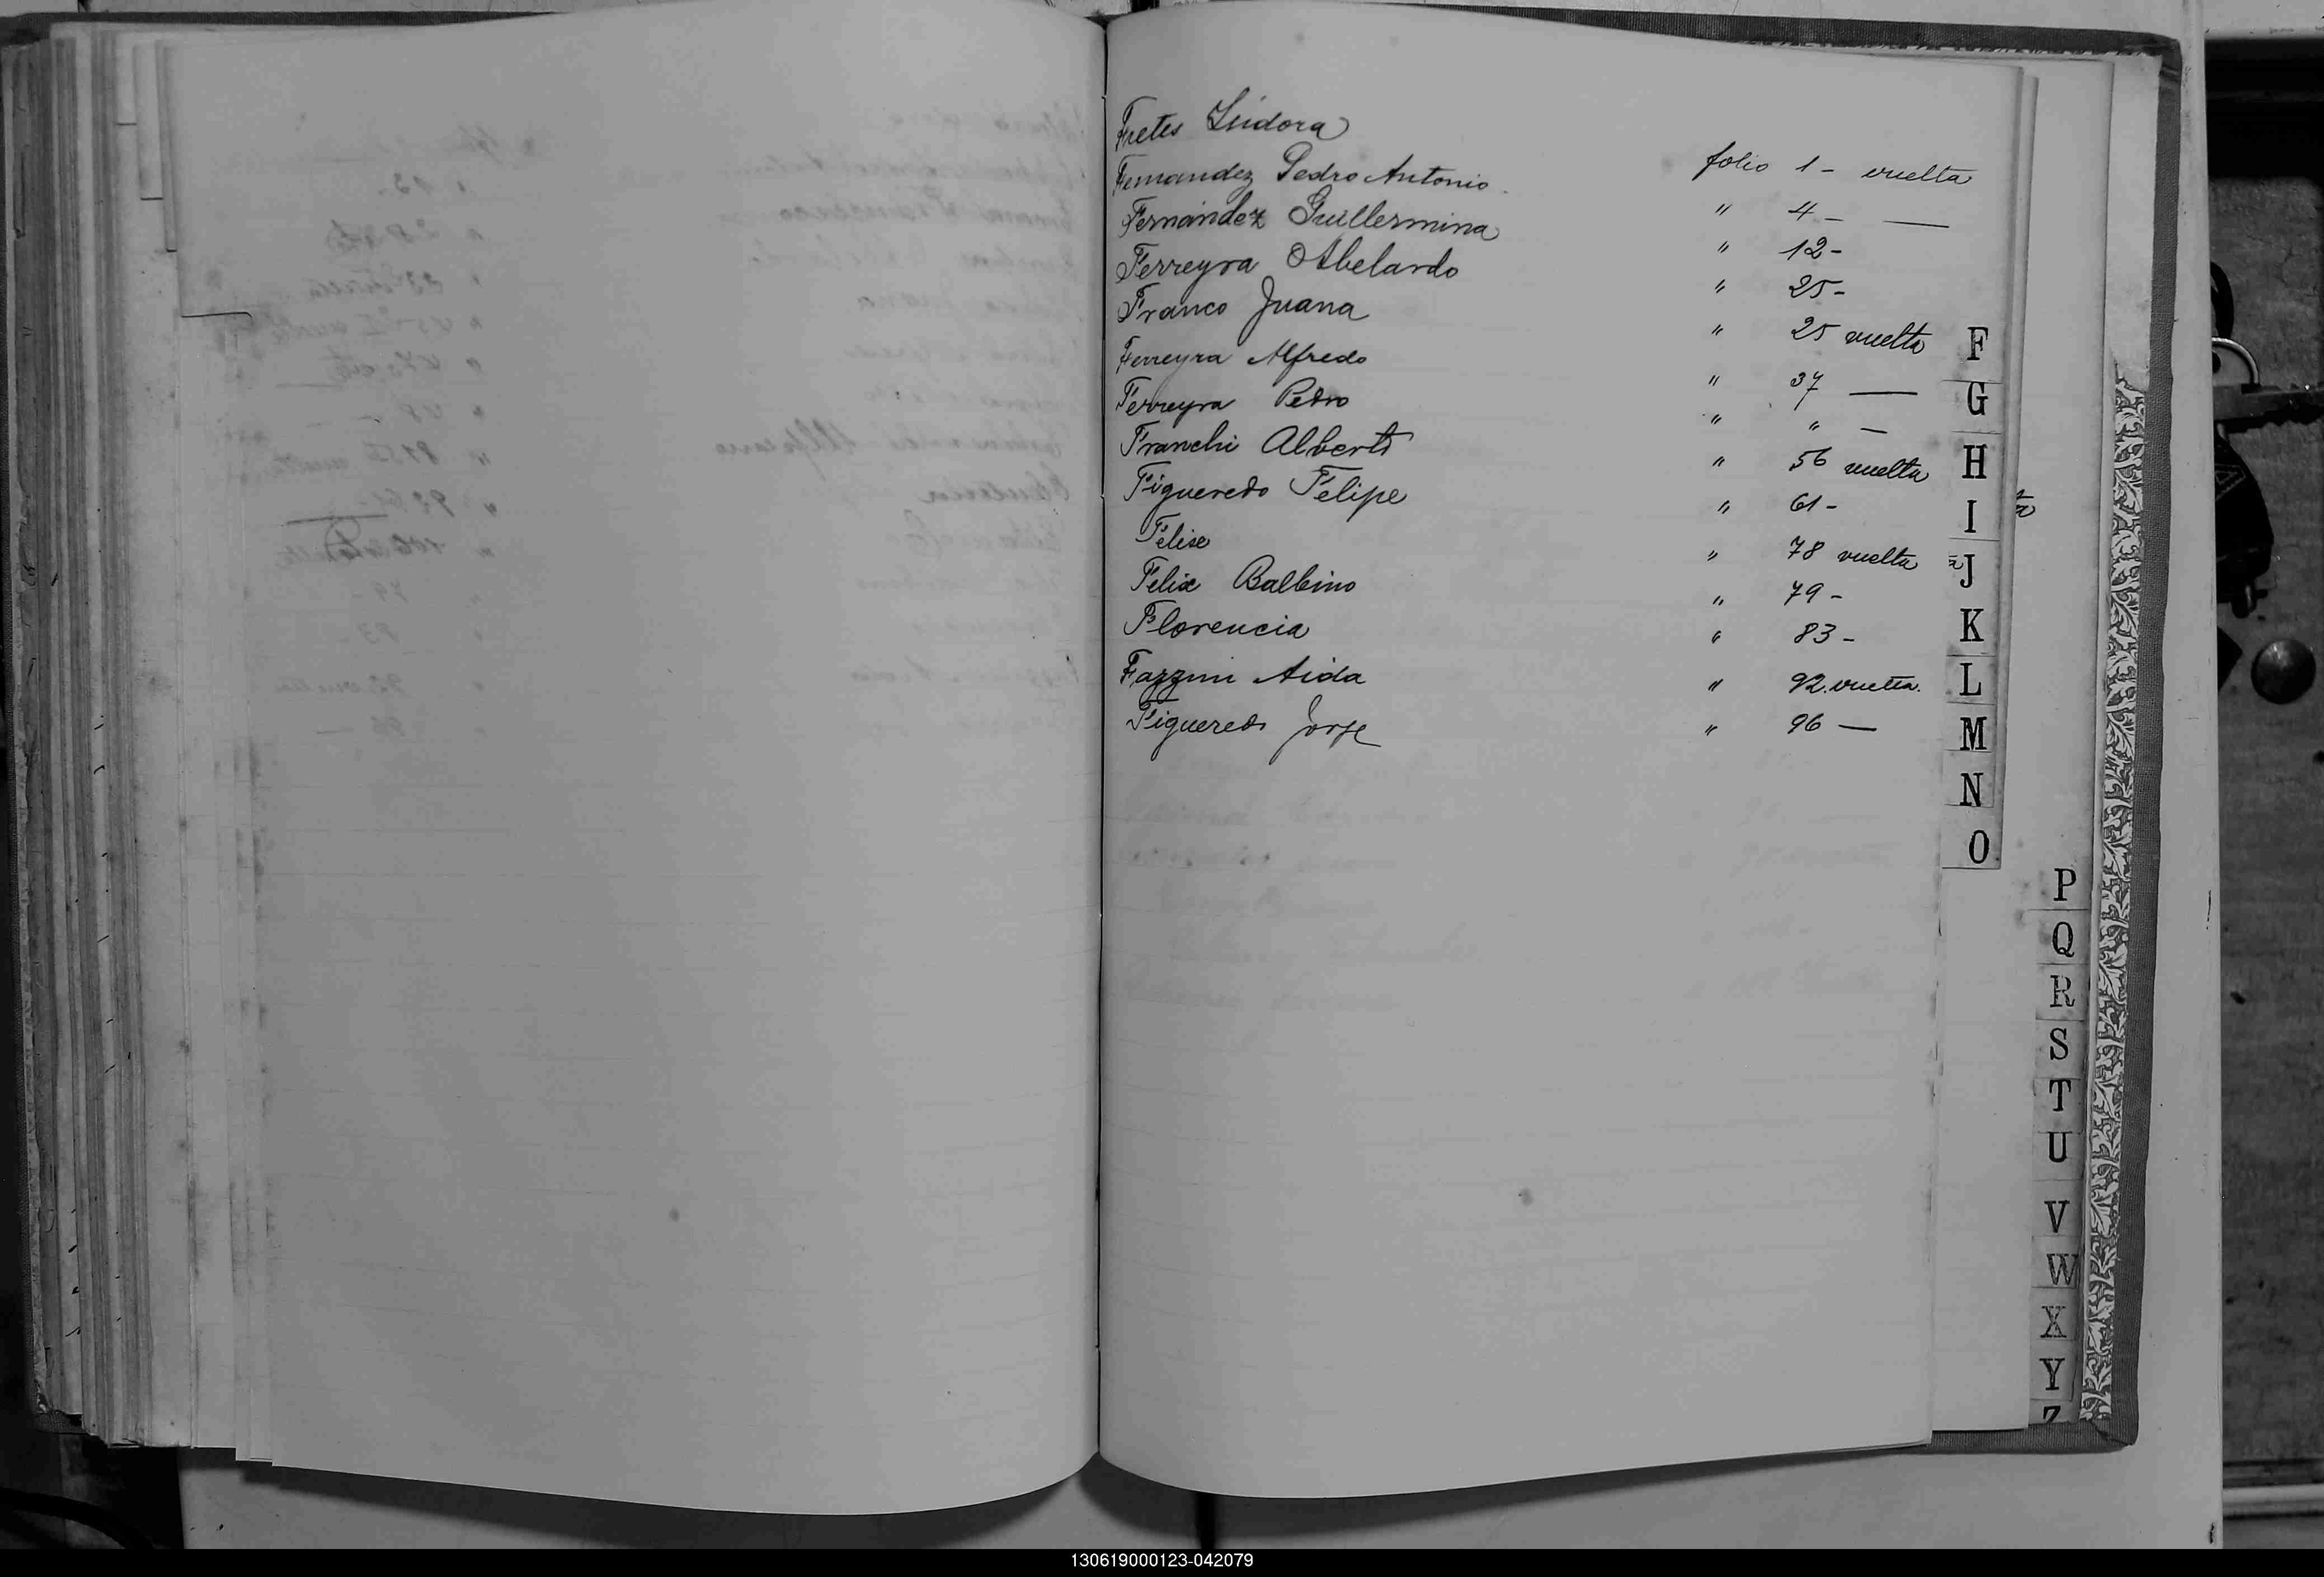 Fretes Isidora folio 1 - vuelta
Fernandez Pedro Antonio " 4 -
Fernández Guillermina " 12 -
Ferreyra Abelardo " 25 -
Franco Juana " 25 vuelta
Ferreyra Alfredo " 37
Ferreyra Pedro " " -
Franchi Alberto " 56 vuelta
Figueredo Felipe " 61 -
Felisa " 78 vuelta
Felix Balbino " 79 -
Florencia " 83 -
Fazzini Aida " 92 vuelta.
Figueredo Jorge " 96 -
F
G
H
I
J
K
L
M
N
O
P
Q
R
S
T
U
V
W
X
Y
Z
130619000123-042079